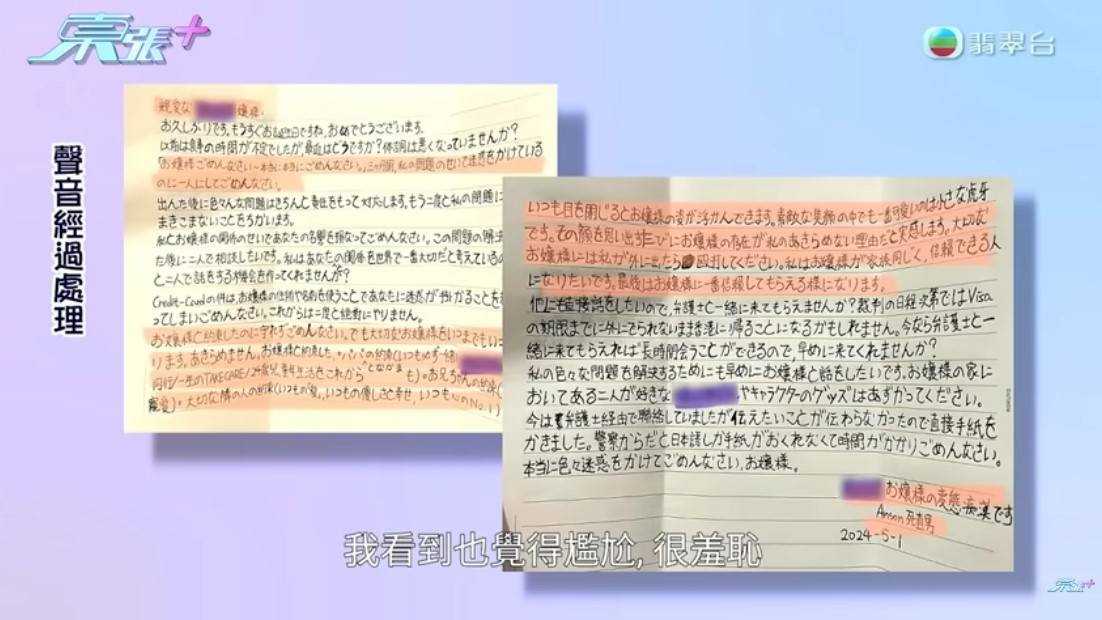 東張+
翡翠台
聲音經過處理
親愛な お嬢様
お久しぶりです。もうすぐお誕生日ですね、おめでとうございます。
以前は食事の時間が不定でしたが、最近はどうですか?体調は悪くなっていませんか?
「お嬢様ごめんなさい〜本当に本当にごめんなさい。」三ヶ月間、私の問題のせいで迷惑をかけている
のに一人にしてごめんなさい。
出んた後に色々な問題はきちんと責任をもって対応します。もう二度と私の問題に
まきこまないことをちかいます。
私とお嬢様の関係のせいであなたの名誉を損なってごめんなさい。この問題の解決
た後に二人で相談したいです。私はあなたの関係を世界で一番大切だと考えているの
と二人で話をする機会を作ってくれませんか?
Credit-Cardの件は、お嬢様の住所や名前を使うことであなたに迷惑が掛かることを
ってしまいごめんなさい。これからは二度と絶対にやりません。
お嬢様と約束したのに守れずごめんなさい。でも大切なお嬢様をいつまでもいつ
ります。あきらめません。お嬢様と約束した、パパの約束(いつも必ず一緒
TAKE CARE も)。お兄ちゃんの約束(
寵愛)。大切な隣の人の約束(いつもの愛、いつもの優しさと幸せ、いつも心のNo.1)
いつも目を閉じるとお嬢様の姿が浮かんできます。素敵な笑顔の中でも一番可愛いのは小さな虎牙
です。その顔を思い出すたびにお嬢様の存在が私のあきらめない理由だと実感します。大切な
お嬢様には私が外に出たら してください。私はお嬢様が家族同じく、信頼できる人
になりたいです。最後はお嬢様に一番信頼してもらえる様になります。
他にも直接話をしたいので、弁護士と一緒に来てもらえませんか?裁判の日程次第ではVisa
の期限までに外にでられないまま香港に帰ることになるかもしれません。今なら弁護士と一
緒に来てもらえれば長時間会うことができるので、早めに来てくれませんか?
私の色々な問題を解決するためにも早めにお嬢様と話をしたいです。お嬢様の家に
おいてある二人が好きな やキャラクターのグッズはあずかってください。
今は弁護士経由で聯絡していましたが伝えたいことが伝わらなかったので直接手紙を
かきました。警察からだと日本語しか手紙がおくれなくて時間がかかりごめんなさい。
本当に色々迷惑をかけてごめんなさい、お嬢様。
お嬢様の変態痴漢です
Anson 死直男
2024-5-1
我看到也覺得尷尬, 很羞恥
東張+